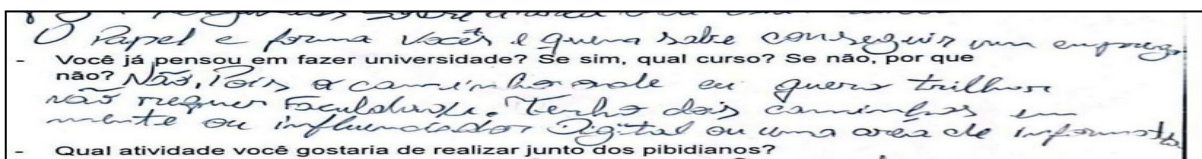 O Papel e forma vocês e quem sabe conseguir um emprego
- Você já pensou em fazer universidade? Se sim, qual curso? Se não, por que
não? Não, Pois o caminho onde eu quero trilhar
não requer Faculdade. Tenho dois caminhos em
mente ou influenciador Digital ou uma area de informat
- Qual atividade você gostaria de realizar junto dos pibidianos?